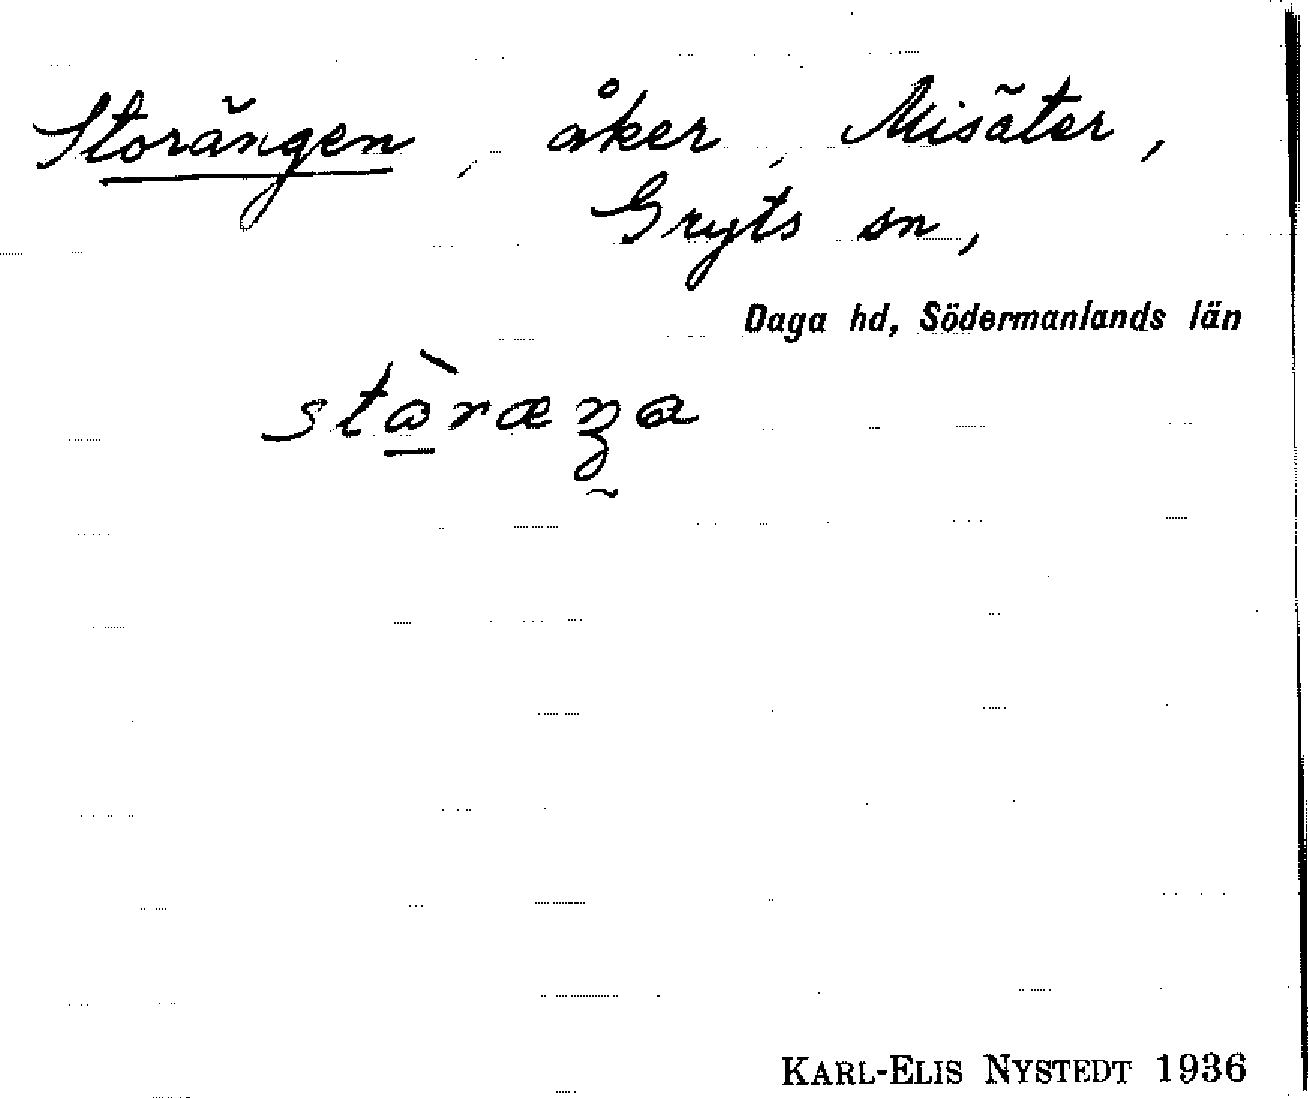 Storängen, åker, Misäter,
Gryts sn,
Daga hd, Södermanlands län
KARL-ELIS NYSTEDT 1936